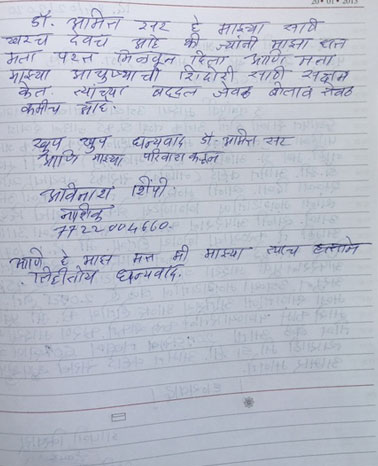 20 • 01 • 2013
डॉ. अमित सर हे माझ्या साठी
खरच देवच आहे की ज्यांनी माझा हात
मला परत मिळवून दिला आणि मला
माझ्या आयुष्याची शिदोरी साठी सक्षम
केल. त्यांच्या बद्दल जेवढ बोलाव तेवढ
कमीच आहे.
खुप खुप धन्यवाद डॉ अमित सर
आणि माझ्या परिवारा कडून
अविनाश शिंपी
नाशिक
7722004660.
आणि हे माझ मत मी माझ्या त्याच
लिहीतोय धन्यवाद.